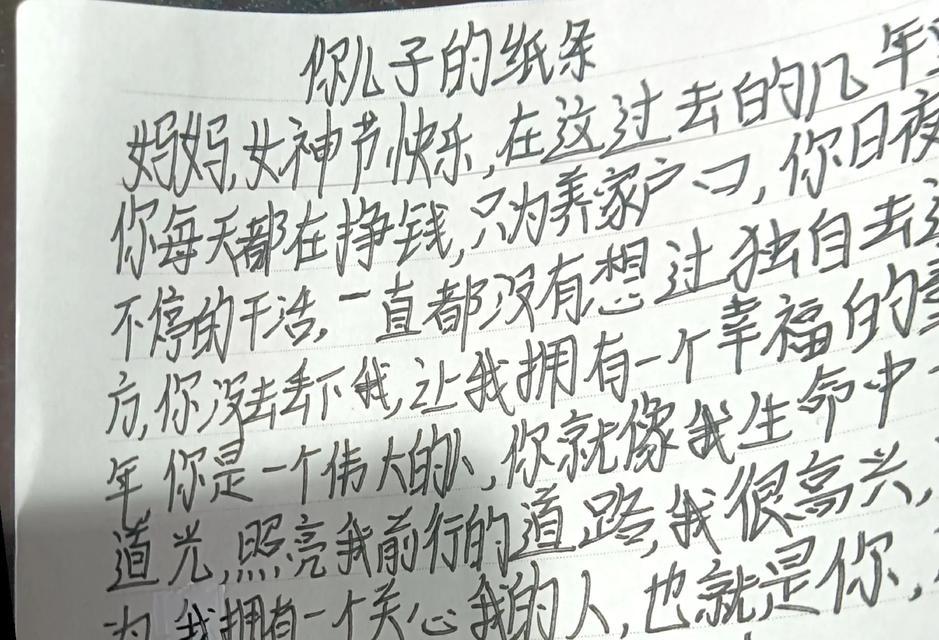 你儿子的纸条
妈妈,女神节快乐,在这过去的几年
你每天都在挣钱,只为养家户口,你日夜
不停的干活,一直都没有想过独自去
方,你没去丢下我,让我拥有一个幸福的
年 你是一个伟大的人,你就像我生命中
道光,照亮我前行的道路,我很高兴,
为 我拥有一个关心我的人,也就是你,